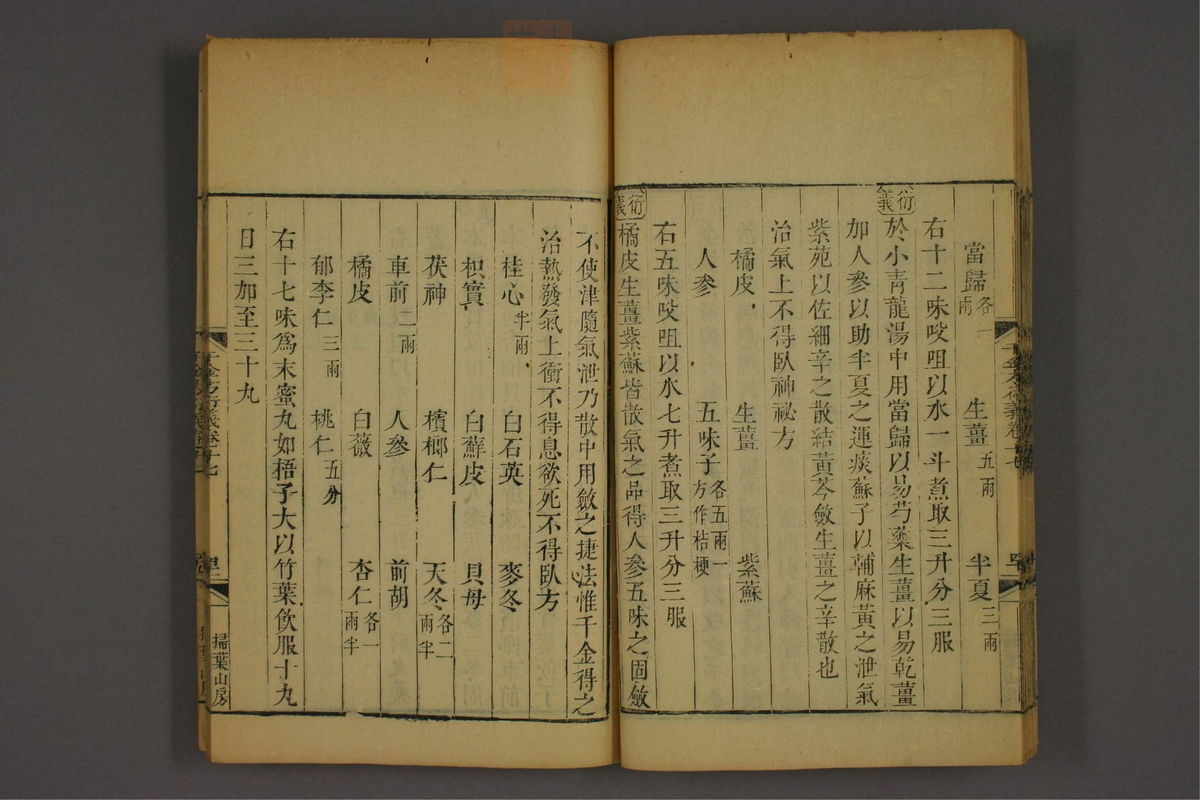 當歸各一兩 生薑五兩 半夏三兩
右十二味㕮咀以水一斗煮取三升分三服
衍義
於小青龍湯中用當歸以易芍藥生薑以易乾薑
加人參以助半夏之運痰蘇子以輔麻黃之泄氣
紫苑以佐細辛之散結黃芩斂生薑之辛散也
治氣上不得臥神祕方
橘皮 生薑 紫蘇
人參 五味子各五兩一方作桔梗
右五味㕮咀以水七升煮取三升分三服
衍義
橘皮生薑紫蘇皆散氣之品得人參五味之固斂
不使津隨氣泄乃散中用斂之捷法惟千金得之
治熱發氣上衝不得息欲死不得臥方
桂心半兩 白石英 麥冬
枳實 白蘇皮 貝母
茯神 檳榔仁 天冬各二兩半
車前二兩 人參 前胡
橘皮 白薇 杏仁各一兩半
郁李仁三兩 桃仁五分
右十七味爲末蜜丸如梧子大以竹葉飲服十丸
日三加至三十丸
掃葉山房